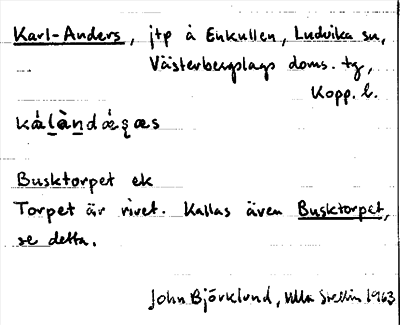 Karl-Anders, jtp å Enkullen, Ludvika sn,
Västerbergslags doms. tg,
Kopp. l.
Busktorpet ek
Torpet är rivet. Kallas även Busktorpet,
se detta.
John Björklund, Ulla Swellin 1963